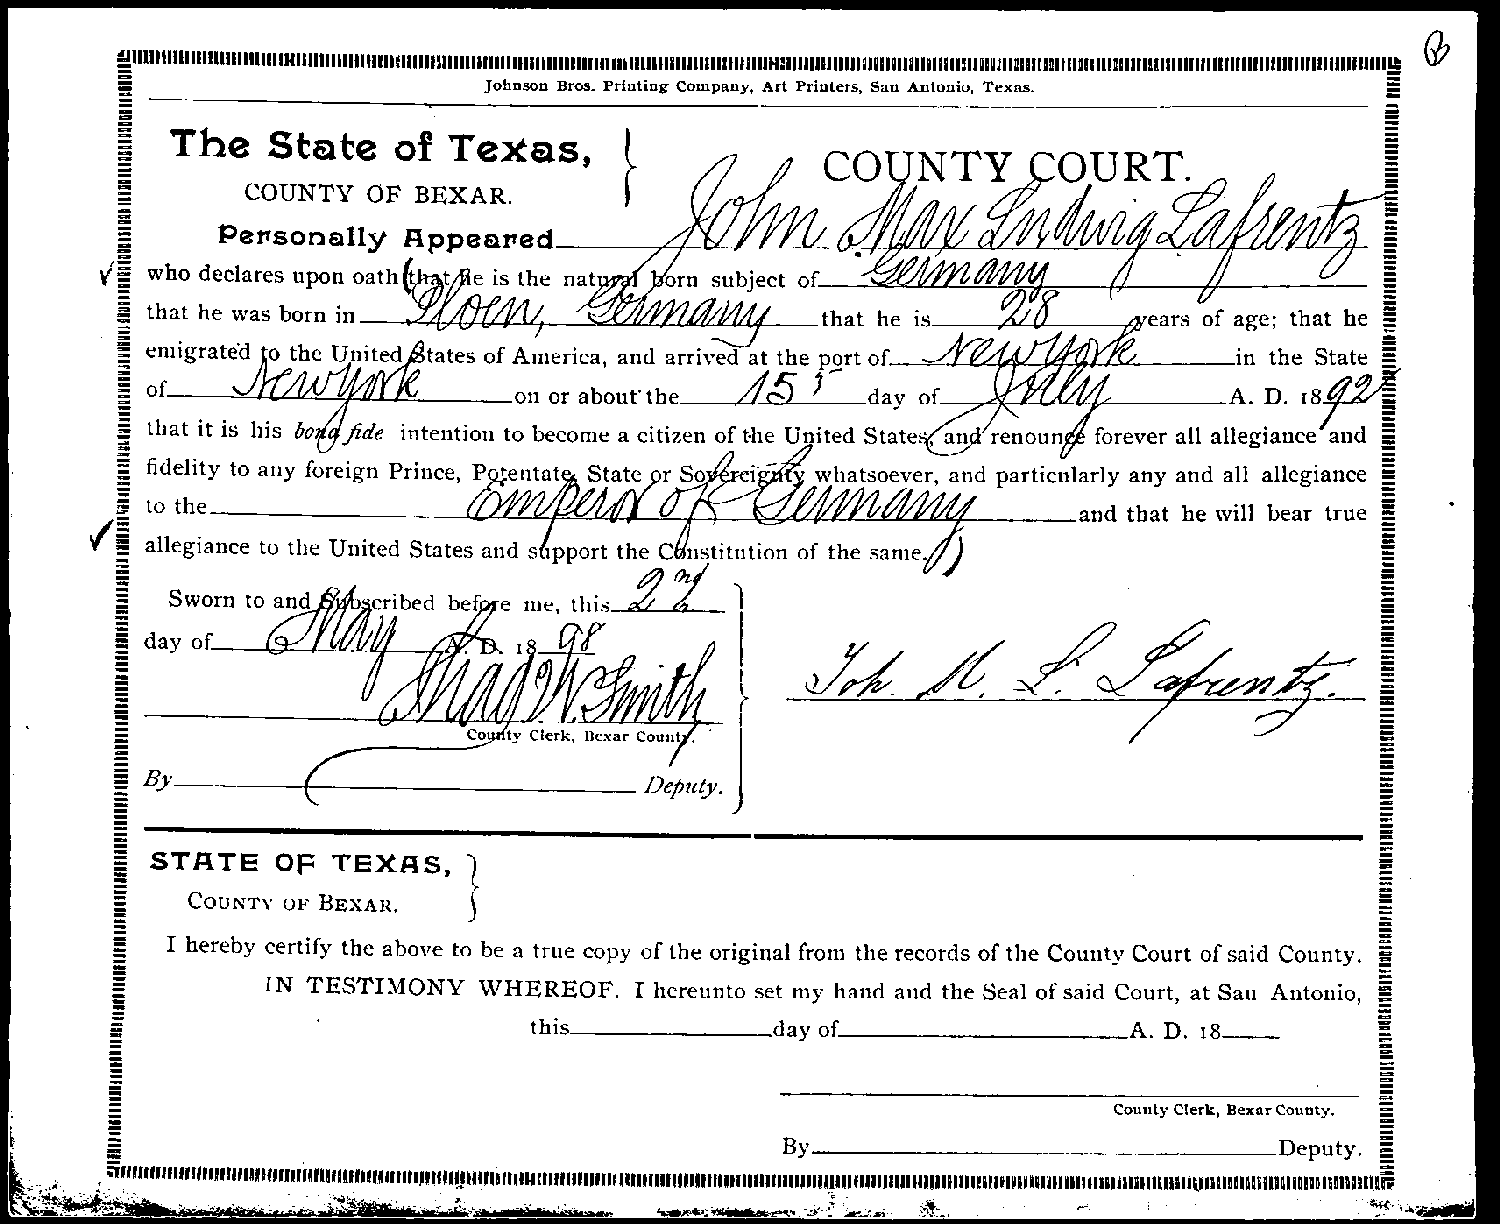 Johnson Bros. Printing Company, Art Printers, San Antonio, Texas.
The State of Texas,
COUNTY OF BEXAR.
COUNTY COURT.
Personally Appeared John Max Ludwig Lafrentz
who declares upon oath (that he is the natural born subject of Germany
that he was born in Ploen, Germany that he is 28 years of age; that he
emigrated to the United States of America, and arrived at the port of New York in the State
of New York on or about the 15 day of July A. D. 1892
that it is his bona fide intention to become a citizen of the United States, and renounce forever all allegiance and
fidelity to any foreign Prince, Potentate, State or Sovereignty whatsoever, and particularly any and all allegiance
to the Emperor of Germany and that he will bear true
allegiance to the United States and support the Constitution of the same.)
Sworn to and Subscribed before me, this 22nd
day of May A. D. 1898
Thad W. Smith
County Clerk, Bexar County.
By Deputy.
Joh. M. L. Lafrentz.
STATE OF TEXAS,
COUNTY OF BEXAR.
I hereby certify the above to be a true copy of the original from the records of the County Court of said County.
IN TESTIMONY WHEREOF, I hereunto set my hand and the Seal of said Court, at San Antonio,
this day of A. D. 18
County Clerk, Bexar County.
By Deputy.